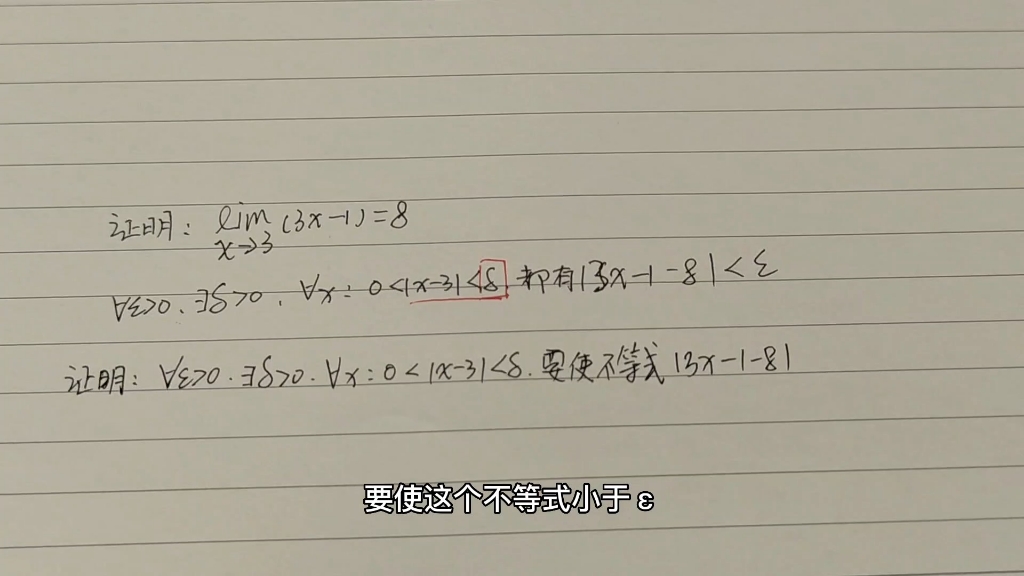 证明: lim (3x-1)=8
x→3
∀ε>0. ∃δ>0. ∀x: 0<|x-3|<δ 都有|3x-1-8|<ε
证明: ∀ε>0. ∃δ>0. ∀x: 0<|x-3|<δ. 要使不等式 |3x-1-8|
要使这个不等式小于 ε